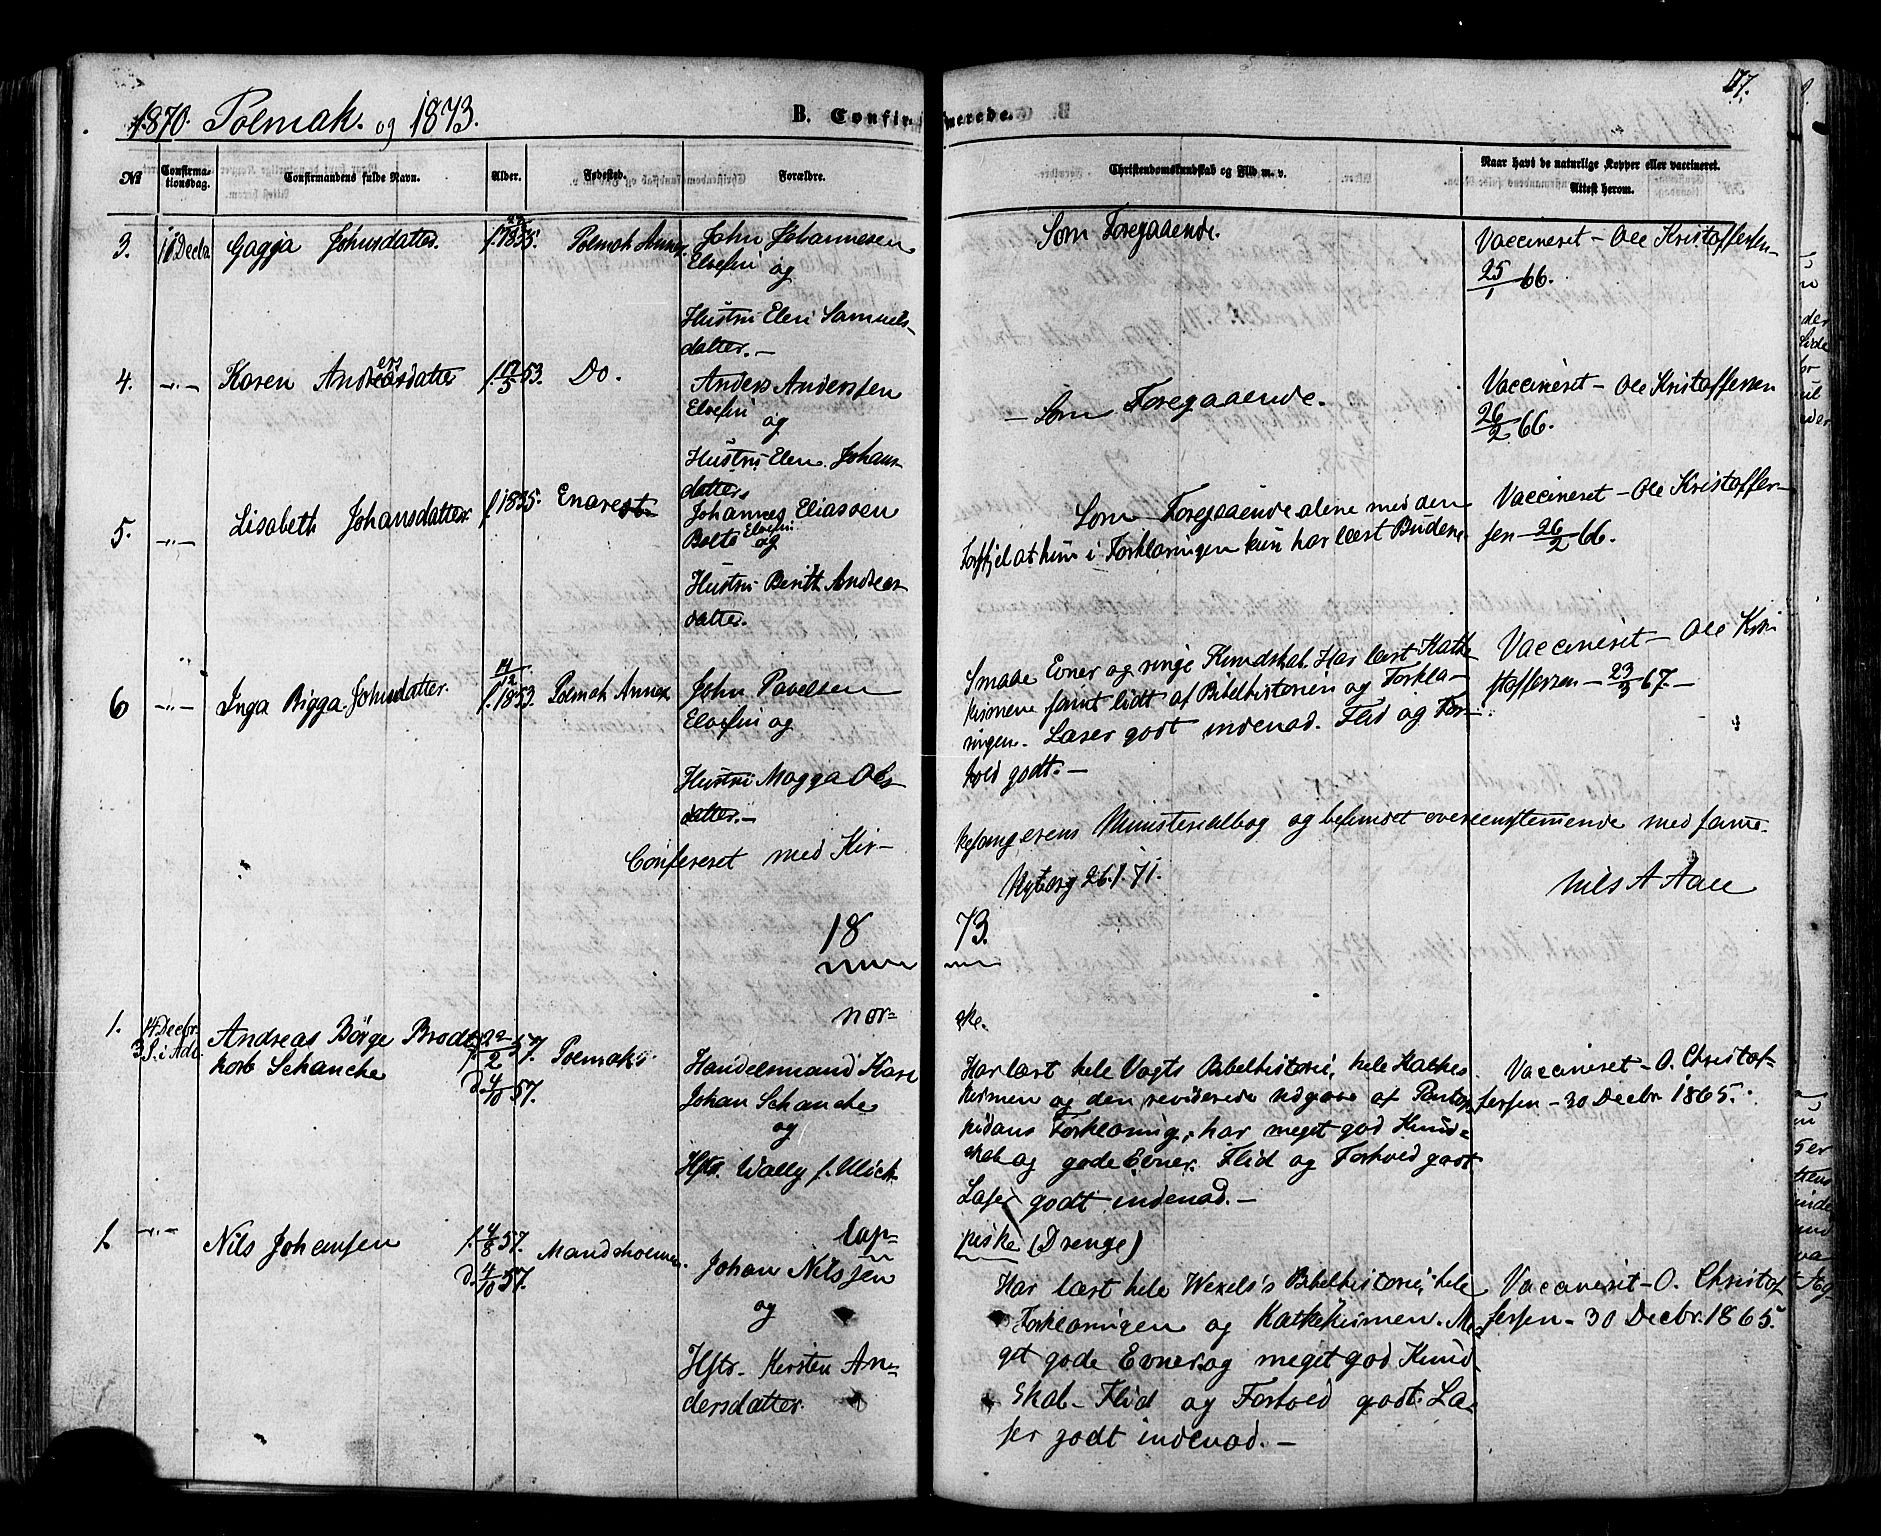 1870. Polmak. og 1873.
B. Confirmerede.
177.
Nr
Confirmationsdag.
Confirmandens fulde Navn.
Alder.
Fødested.
Forældre.
Christendomskundskab og Flid m. v.
Naar havt de naturlige Kopper eller vaccineret.
Attest herom.
3. 11 Decbr Gagga Johnsdatter. f. 1855. Polmak Annex John Johannesen
Elvefin og
Hustru Elen Samuels-
datter.-
Som Foregaaende.
Vaccineret - Ole Kristoffersen-
25/1 66.
4. -"- Karen Andersdatter f. 17/5 53. Do. Anders Anderssen
Elvefin og
Hustru Elen Johans
datter
- Som Foregaaende.
Vaccineret - Ole Kristoffersen
26/2 66.
5. -"- Lisabeth Johansdatter. f. 1835. Enare Johannes Eliassen
Balto Elvefin og
Hustru Beritt Andreas
datter.
Som Foregaaende alene med den
Forskjel at hun i Forklaringen kun har læst Budene.
Vaccineret - Ole Kristoffer-
sen - 26/2 66.
6 -"- Inga Bigga Johnsdatter. f. 14/12 1853. Polmak Annex John Povelsen
Elvefin og
Hustru Magga Ols
datter.-
Smaae Evner og ringe Kundskab. Har læst Kathe
kismene samt lidt af Bibelhistorien og Forkla-
ringen. Læser godt indenad. Flid og For-
hold godt.-
Vaccineret - Ole Kri
stoffersen - 23/3 67.-
Confereret med Kir-
kesangerens Ministerialbog og befundet overeensstemmende med samme.
Nyborg 26.1.71.
Nils A Aall
18 73.
nor-
ske.
1. 14 Decbr.
3 S. i Adv.
Andreas Börge Brodt
korb Schanche
f. 22/2 57.
d. 4/10 57.
Polmak
Handelsmand Karl
Johan Schanche
og
Hstr. Wally f. Ulich
Har læst hele Vogts Bibelhistorie, hele Kathe
kismen og den reviderede Udgave af Pontop
pidans Forklaring, har meget god Kund-
skab og gode Evner. Flid og Forhold godt
Læser godt indenad.-
Vaccineret - O. Christof-
fersen - 30 Decbr 1865.
lap-
piske (Drenge)
1. -"- Nils Johansen
f. 4/8 57.
d. 4/10 57.
Mandsholmen.
Johan Nilssen
og
Hstr. Kersten An-
dersdatter.
Har læst hele Wexels's Bibelhistorie, hele
Forklaringen og Kathekismen. Me
get gode Evner og meget god Kund
skab - Flid og Forhold godt. Læ-
ser godt indenad.-
Vaccineret - O. Christof
fersen - 30 Decbr. 1865.